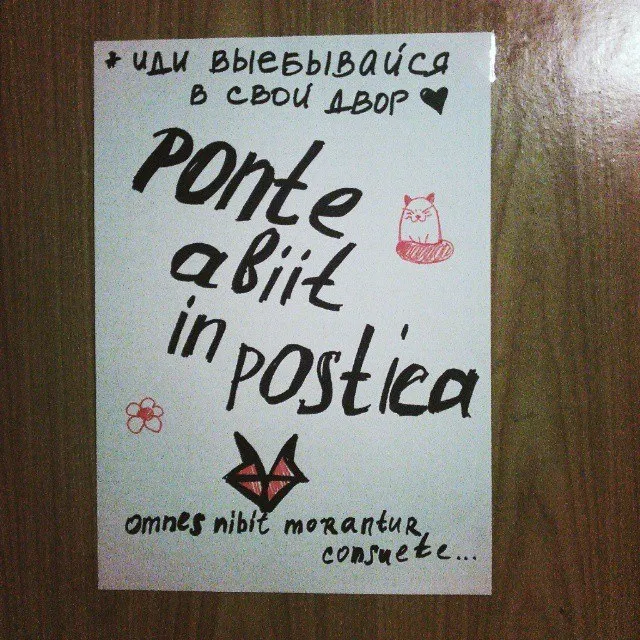 * иди выебывайся
в свой двор ♥
Ponte
abiit
in postica
omnes nibit morantur
consuete...